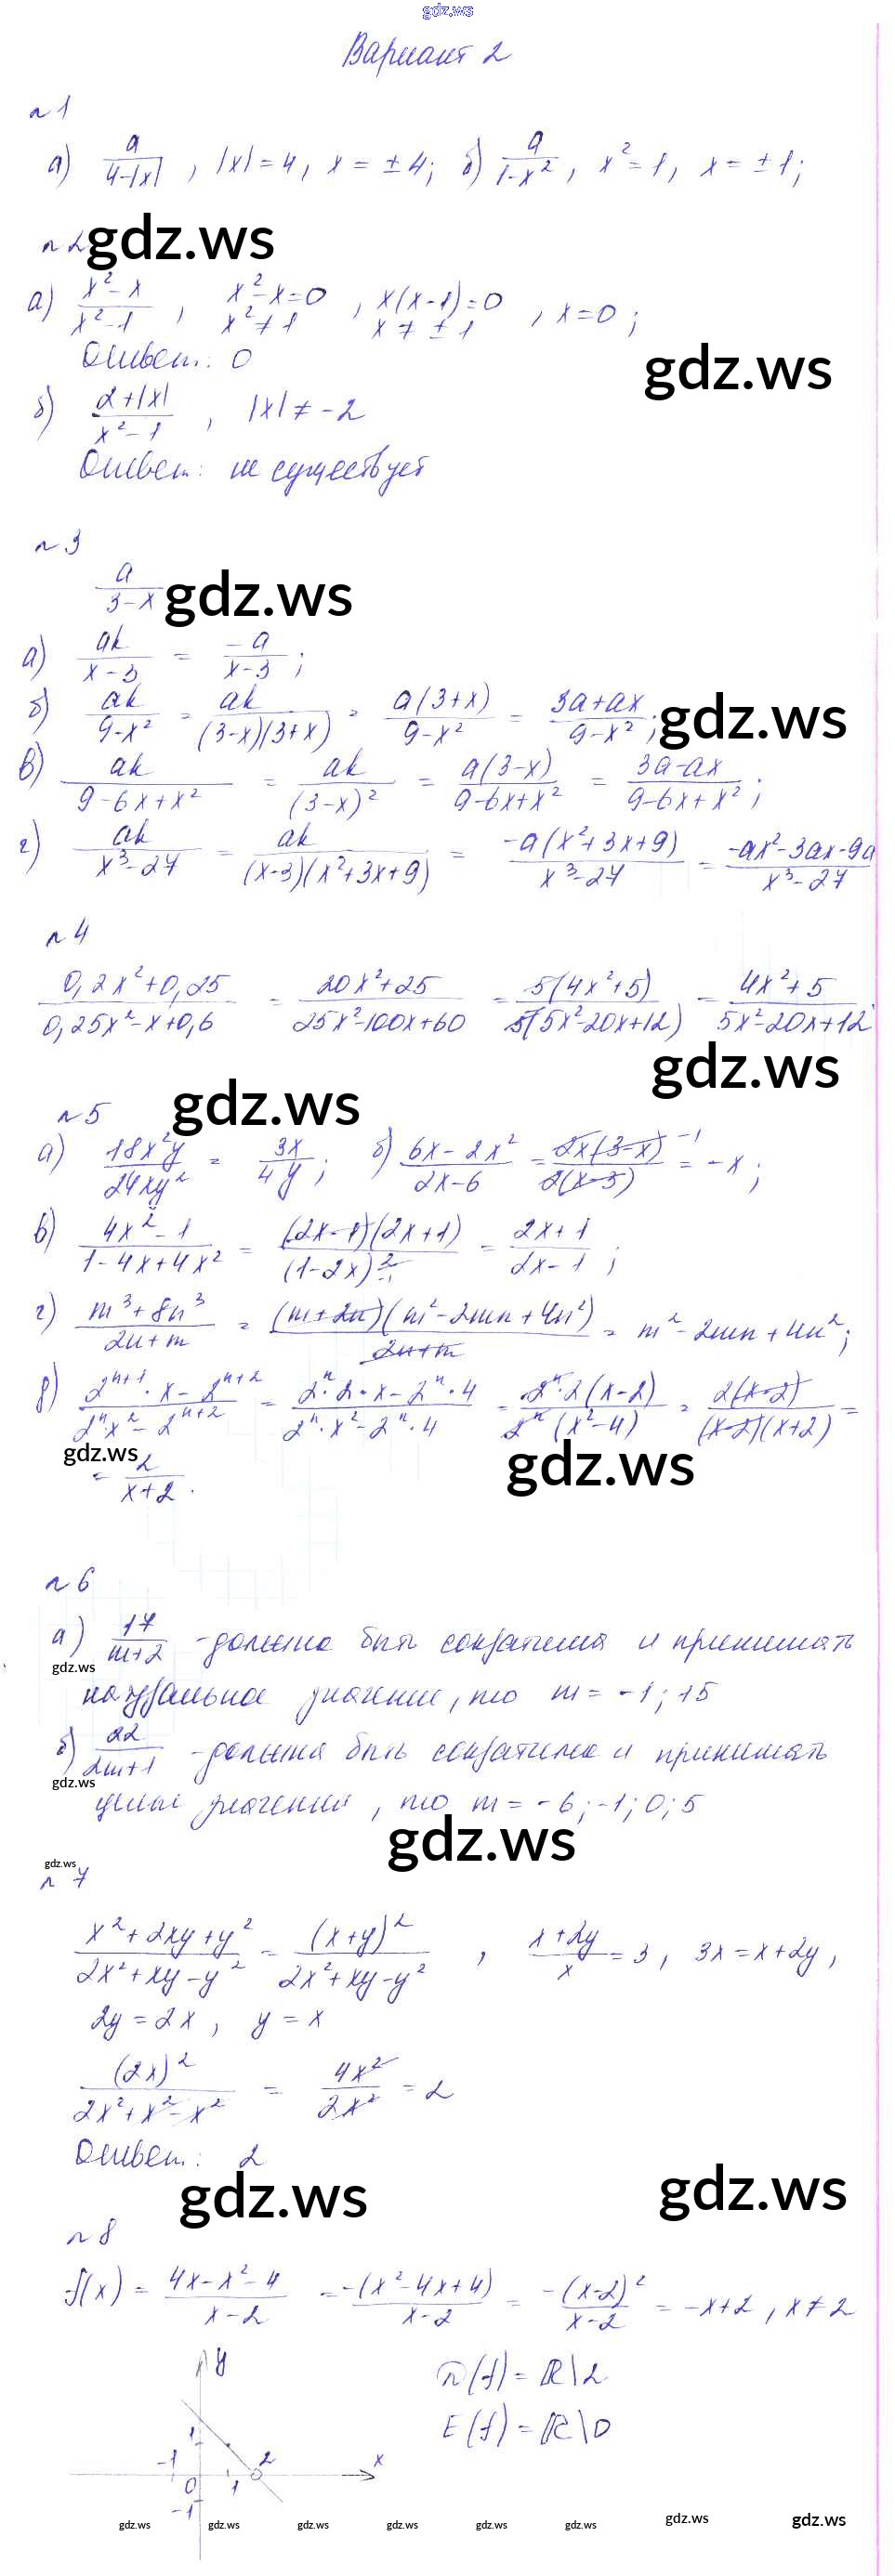 gdz.ws
Вариант 2
n 1
а) a/(4-|x|), |x| = 4, x = ± 4; б) a/(1-x²), x² = 1, x = ± 1;
n 2 gdz.ws
а) (x²-x)/(x²-1), x²-x=0, x²≠1, x(x-1)=0, x ≠ ± 1, x=0;
Ответ: 0
gdz.ws
б) (2+|x|)/(x²-1), |x| ≠ -2
Ответ: не существует
n 3
a/(3-x) gdz.ws
а) ak/(x-3) = -a/(x-3);
б) ak/(9-x²) = ak/((3-x)(3+x)) = a(3+x)/(9-x²) = (3a+ax)/(9-x²); gdz.ws
в) ak/(9-6x+x²) = ak/(3-x)² = a(3-x)/(9-6x+x²) = (3a-ax)/(9-6x+x²);
г) ak/(x³-27) = ak/((x-3)(x²+3x+9)) = -a(x²+3x+9)/(x³-27) = (-ax²-3ax-9a)/(x³-27)
n 4
(0,2x²+0,25)/(0,25x²-x+0,6) = (20x²+25)/(25x²-100x+60) = 5(4x²+5)/(5(5x²-20x+12)) = (4x²+5)/(5x²-20x+12)
gdz.ws
n 5 gdz.ws
а) 18x²y/24xy² = 3x/4y; б) (6x-2x²)/(2x-6) = 2x(3-x)/(2(x-3)) -1 = -x;
в) (4x²-1)/(1-4x+4x²) = (2x-1)(2x+1)/(1-2x)² = (2x+1)/(2x-1);
г) (m³+8n³)/(2n+m) = (m+2n)(m²-2mn+4n²)/(2n+m) = m²-2mn+4n²;
д) (2ⁿ⁺¹·x-2ⁿ⁺²)/(2ⁿ·x²-2ⁿ⁺²) = (2ⁿ·2·x-2ⁿ·4)/(2ⁿ·x²-2ⁿ·4) = 2ⁿ·2(x-2)/(2ⁿ(x²-4)) = 2(x-2)/((x-2)(x+2)) =
gdz.ws
= 2/(x+2).
gdz.ws
n 6
а) 17/(m+2) - должна быть сократима и принимать
gdz.ws
натуральное значение, то m = -1; 15
б) 22/(2m+1) - должна быть сократима и принимать
gdz.ws
целые значения, то m = -6; -1; 0; 5
gdz.ws
gdz.ws
n 7
(x²+2xy+y²)/(2x²+xy-y²) = (x+y)²/(2x²+xy-y²), (x+2y)/x = 3, 3x = x+2y,
2y = 2x, y = x
(2x)²/(2x²+x²-x²) = 4x²/2x² = 2
Ответ: 2
gdz.ws gdz.ws
n 8
f(x) = (4x-x²-4)/(x-2) = -(x²-4x+4)/(x-2) = -(x-2)²/(x-2) = -x+2, x≠2
y
D(f) = R\2
E(f) = R\0
1
-1 0 1 2 x
-1
gdz.ws gdz.ws gdz.ws gdz.ws gdz.ws gdz.ws gdz.ws gdz.ws